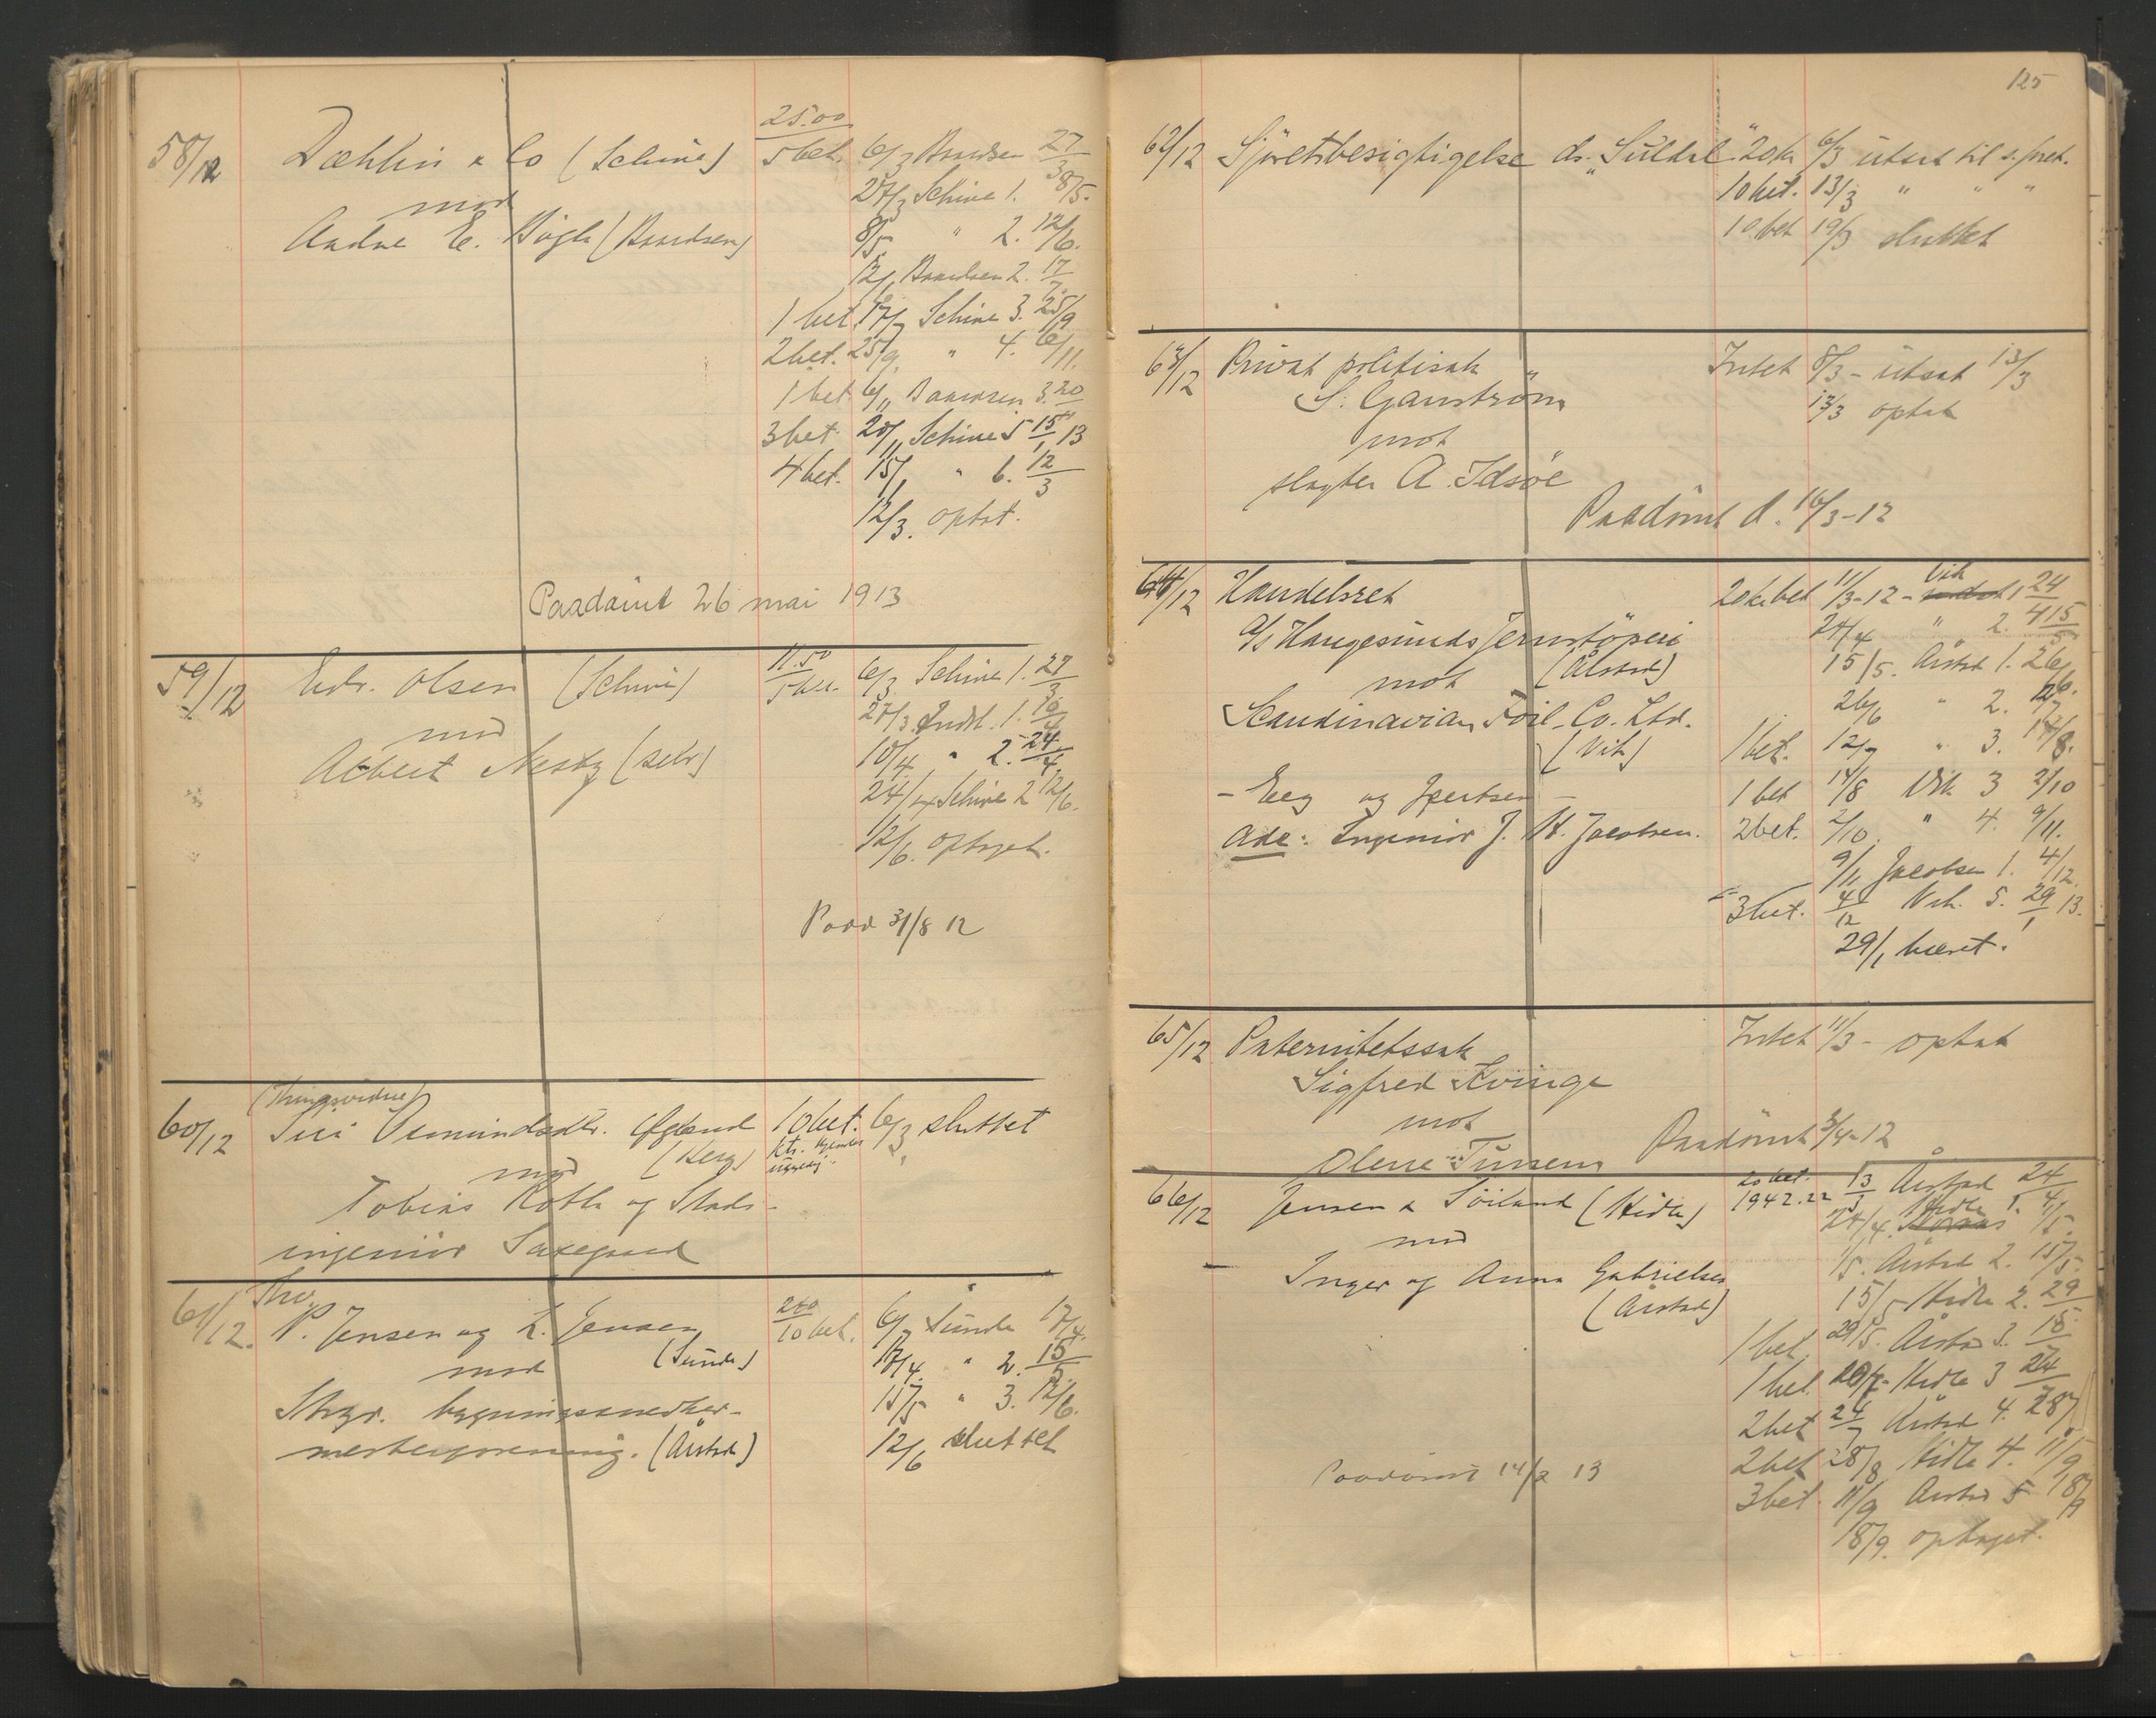 58/12 Dæhlin & Co (Schiøe) 25.00 5 bet. 6/3 Baardsen 27/3
27/3 Schiøe 1. 8/5.
mod
Andne E. Bøgh (Baardsen) 8/5 " 2. 12/6.
12/6 Baardsen 2. 17/7
1 bet 17/7 Schiøe 3. 25/9
2 bet. 25/9. " 4. 6/11.
1 bet 6/11 Baardsen 3. 20/11
3 bet. 20/11 Schiøe 5 15/1 13
4 bet. 15/1 " 6. 12/3
12/3. optat.
Paadømt 26 mai 1913
59/12 Olsen (Schiøe) 11.50 5 bet. 6/3 Schiøe 1. 27/3
27/3. Indst. 1. 10/4
mod
10/4. " 2. 24/4.
Albert Nesby (selv)
24/4 Schiøe 2 12/6.
12/6. optaget.
Paad 31/8 12
(Thingsvidne)
60/12 Siri Osmundsdtr. Øgland 10 bet. 6/3 sluttet
mod (Berg)
Tobias Roth og Stads-
ingeniør Saxegaard
Thv.
61/12. P. Jensen og L. Jensen 10 bet. 6/3 Sunde 17/4.
mod (Sunde) 17/4. " 2. 15/5.
Stvgr. bygningssnedker- 15/5 " 3. 12/6.
mesterforening. (Årstad) 12/6 sluttet
125
62/12 Sjöretsbesigtigelse ds. "Suldal" 20 kr 6/3 utsat til s. foret.
10 bet. 13/3 " " "
10 bet 19/3 sluttet
63/12 Privat politisak Intet 8/3 - utsat 13/3
S. Ganstrøm 13/3 optat
mot
slagter A. Idsøe
Paadömt d. 16/3-12
64/12 Handelsret 20 kr bet 11/3-12 - Vik 1 24/4
A/S Haugesunds Jernstöperi 24/4 " 2. 15/5
(Årstad) 15/5. Årstad 1. 26/6.
mot
Scandinavian Foil Co. Ltd. 26/6 " 2. 12/7
(Vik) 1 bet. 12/7 " 3. 14/8.
- Eeg og Gjertsen - 1 bet 14/8 Vik 3 2/10
Adc: Ingeniør J. H. Jacobsen. 2 bet. 2/10. " 4. 9/11.
9/11 Jacobsen 1. 4/12.
3 bet. 4/12 Vik. 5. 29/1 13.
29/1 hævet.
65/12 Paternitetssak Intet 11/3 - optat
Sigfred Kvinge
mot
Olene Tunsem Paadömt 3/4-12
66/12 Jensen & Söiland (Hidle) 20 bet. 1942.22 13/3 Årstad 24/4
24/4. Hidle 1. 1/5.
mod
1/5. Årstad 2. 15/5.
Inger og Anna Gabrielsen
(Årstad) 15/5 Hidle 2. 29/5
1 bet. 29/5. Årstad 3.
1 bet. Hidle 3 24/7
2 bet 24/7 Årstad 4. 28/8
2 bet 28/8 Hidle 4. 11/9
Paadömt 14/2 13
3 bet. 11/9 Årstad 5 18/9
18/9. optaget.